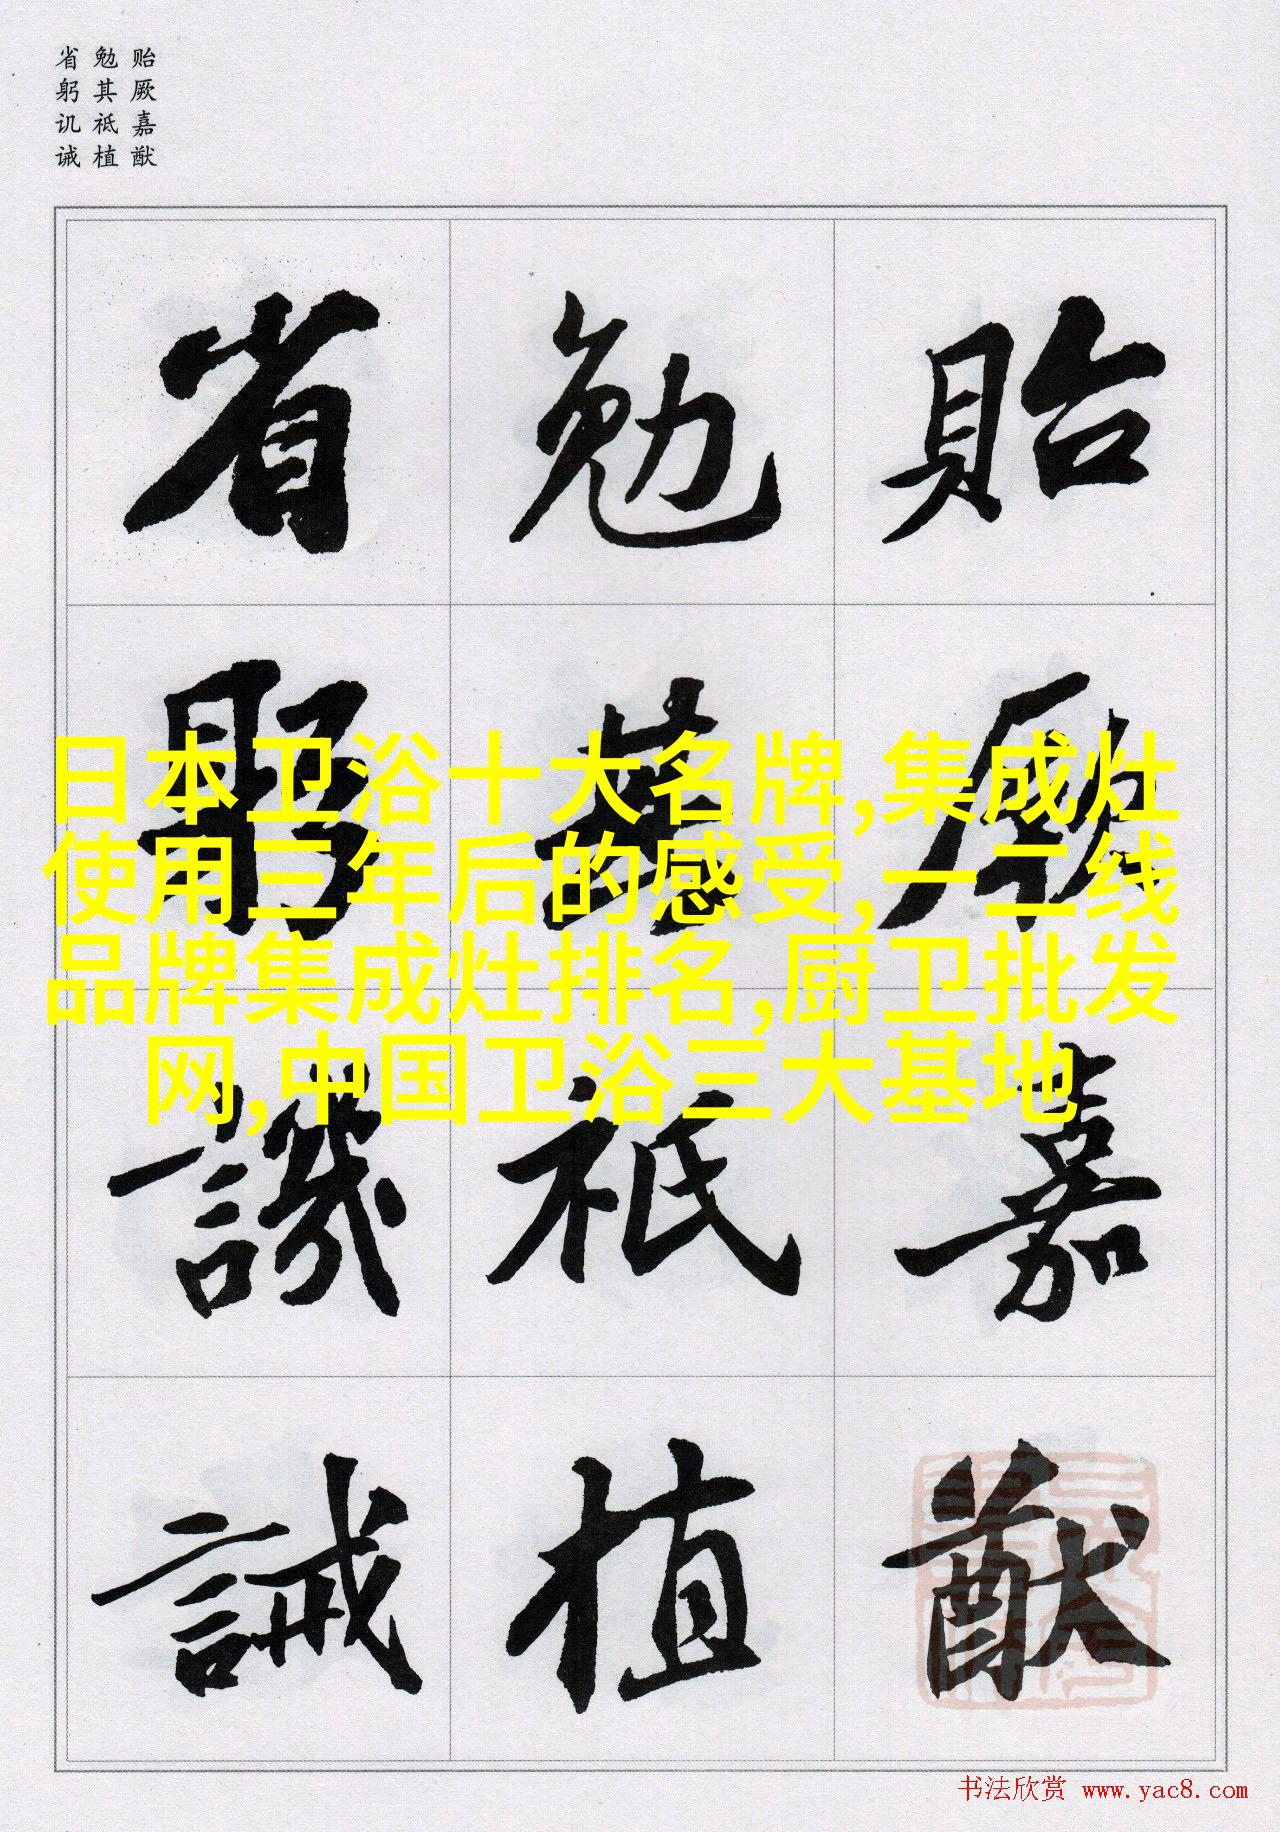 贻厥嘉猷
勉其祗植
省躬讥诫
貽厥嘉猷
勉其祗植
省躬譏誡
日本卫浴十大名牌,集成灶
使用三年后的感受,一二线
品牌集成灶排名,厨卫批发
网,中国卫浴三大基地
书法欣赏 www.yac8.com